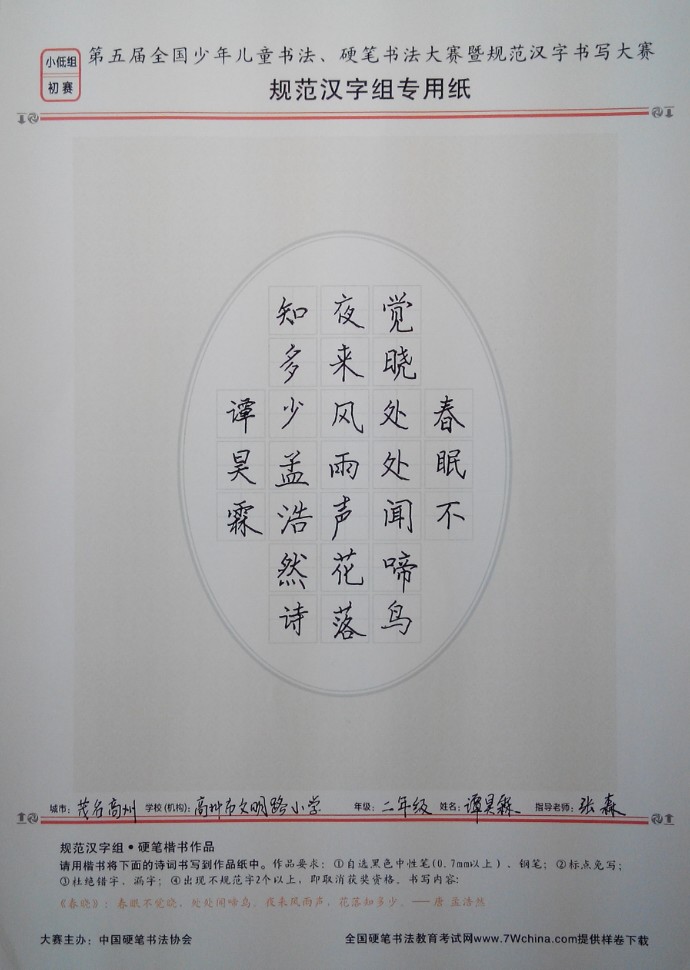 小低组
初赛
第五届全国少年儿童书法、硬笔书法大赛暨规范汉字书写大赛
规范汉字组专用纸
春眠不
觉晓处处闻啼鸟
夜来风雨声花落
知多少孟浩然诗
谭昊霖
城市：茂名高州 学校(机构)：高州市文明路小学 年级：二年级 姓名：谭昊霖 指导老师：张森
规范汉字组•硬笔楷书作品
请用楷书将下面的诗词书写到作品纸中。作品要求：①自选黑色中性笔(0.7mm以上)、钢笔；②标点免写；
③杜绝错字、漏字；④出现不规范字2个以上，即取消获奖资格。书写内容：
《春晓》：春眠不觉晓，处处闻啼鸟。夜来风雨声，花落知多少。——唐 孟浩然
大赛主办：中国硬笔书法协会 全国硬笔书法教育考试网www.7Wchina.com提供样卷下载